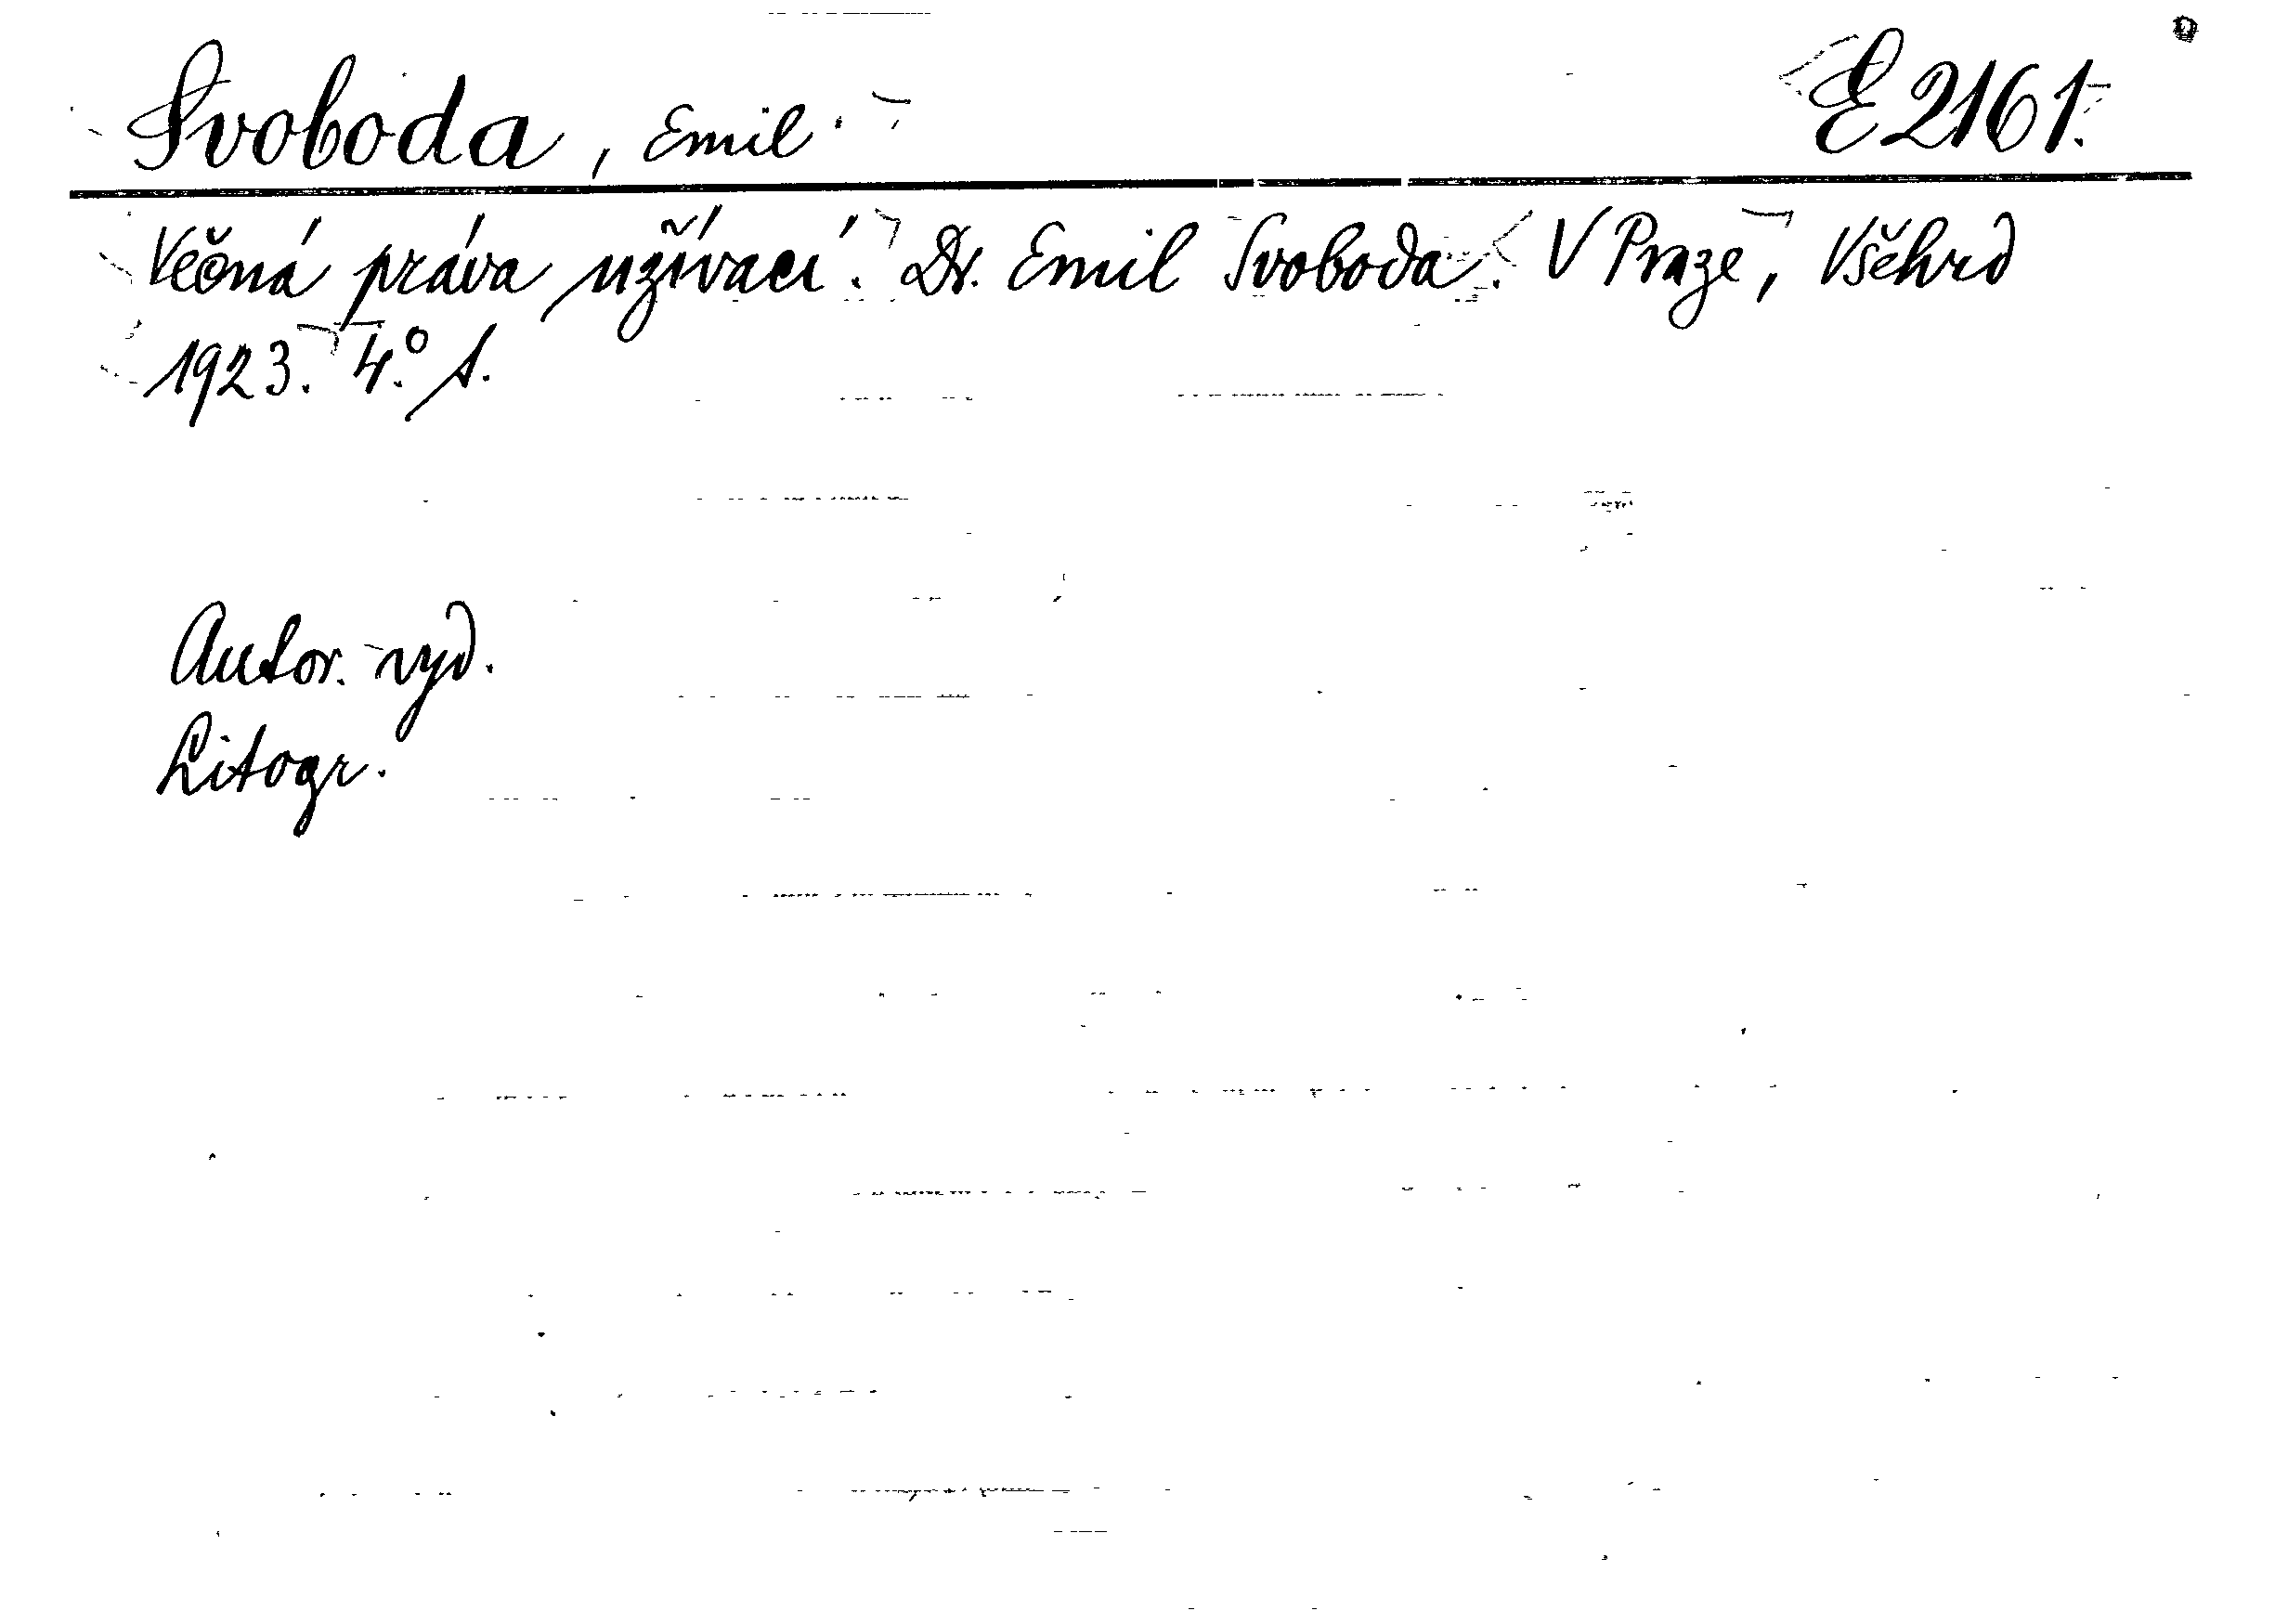 Svoboda, Emil. E 2161.
Věčná práva užívací. Dr. Emil Svoboda. V Praze, Všehrd
1923. 4.° s.
Autor. vyd.
Litogr.